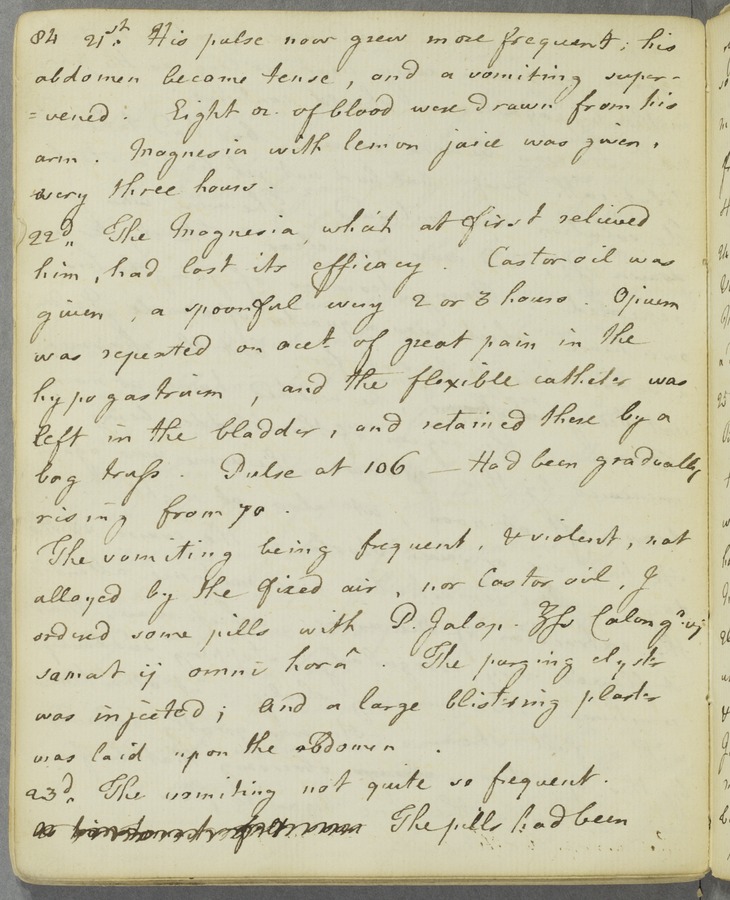 84 21st. His pulse now grew more frequent; his
abdomen became tense, and a vomiting super-
=vened. Eight oz. of blood were drawn from his
arm. Magnesia with lemon juice was given,
every three hours.
22d,, The Magnesia, which at first relieved
him, had lost its efficacy. Castor oil was
given, a spoonful every 2 or 3 hours. Opium
was repeated on acct. of great pain in the
hypogastrium, and the flexible catheter was
left in the bladder, and retained there by a
bag truss. Pulse at 106 — Had been gradually
rising from 70.
The vomiting being frequent, & violent, not
allayed by the fixed air, nor Castor oil, I
ordered some pills with P. Jalap. ʒss Calom gr. vj
samat ij omni horâ. The purging clyster
was injected; and a large blistering plaster
was laid upon the abdomen.
23d,, The vomiting not quite so frequent.
The pills had been